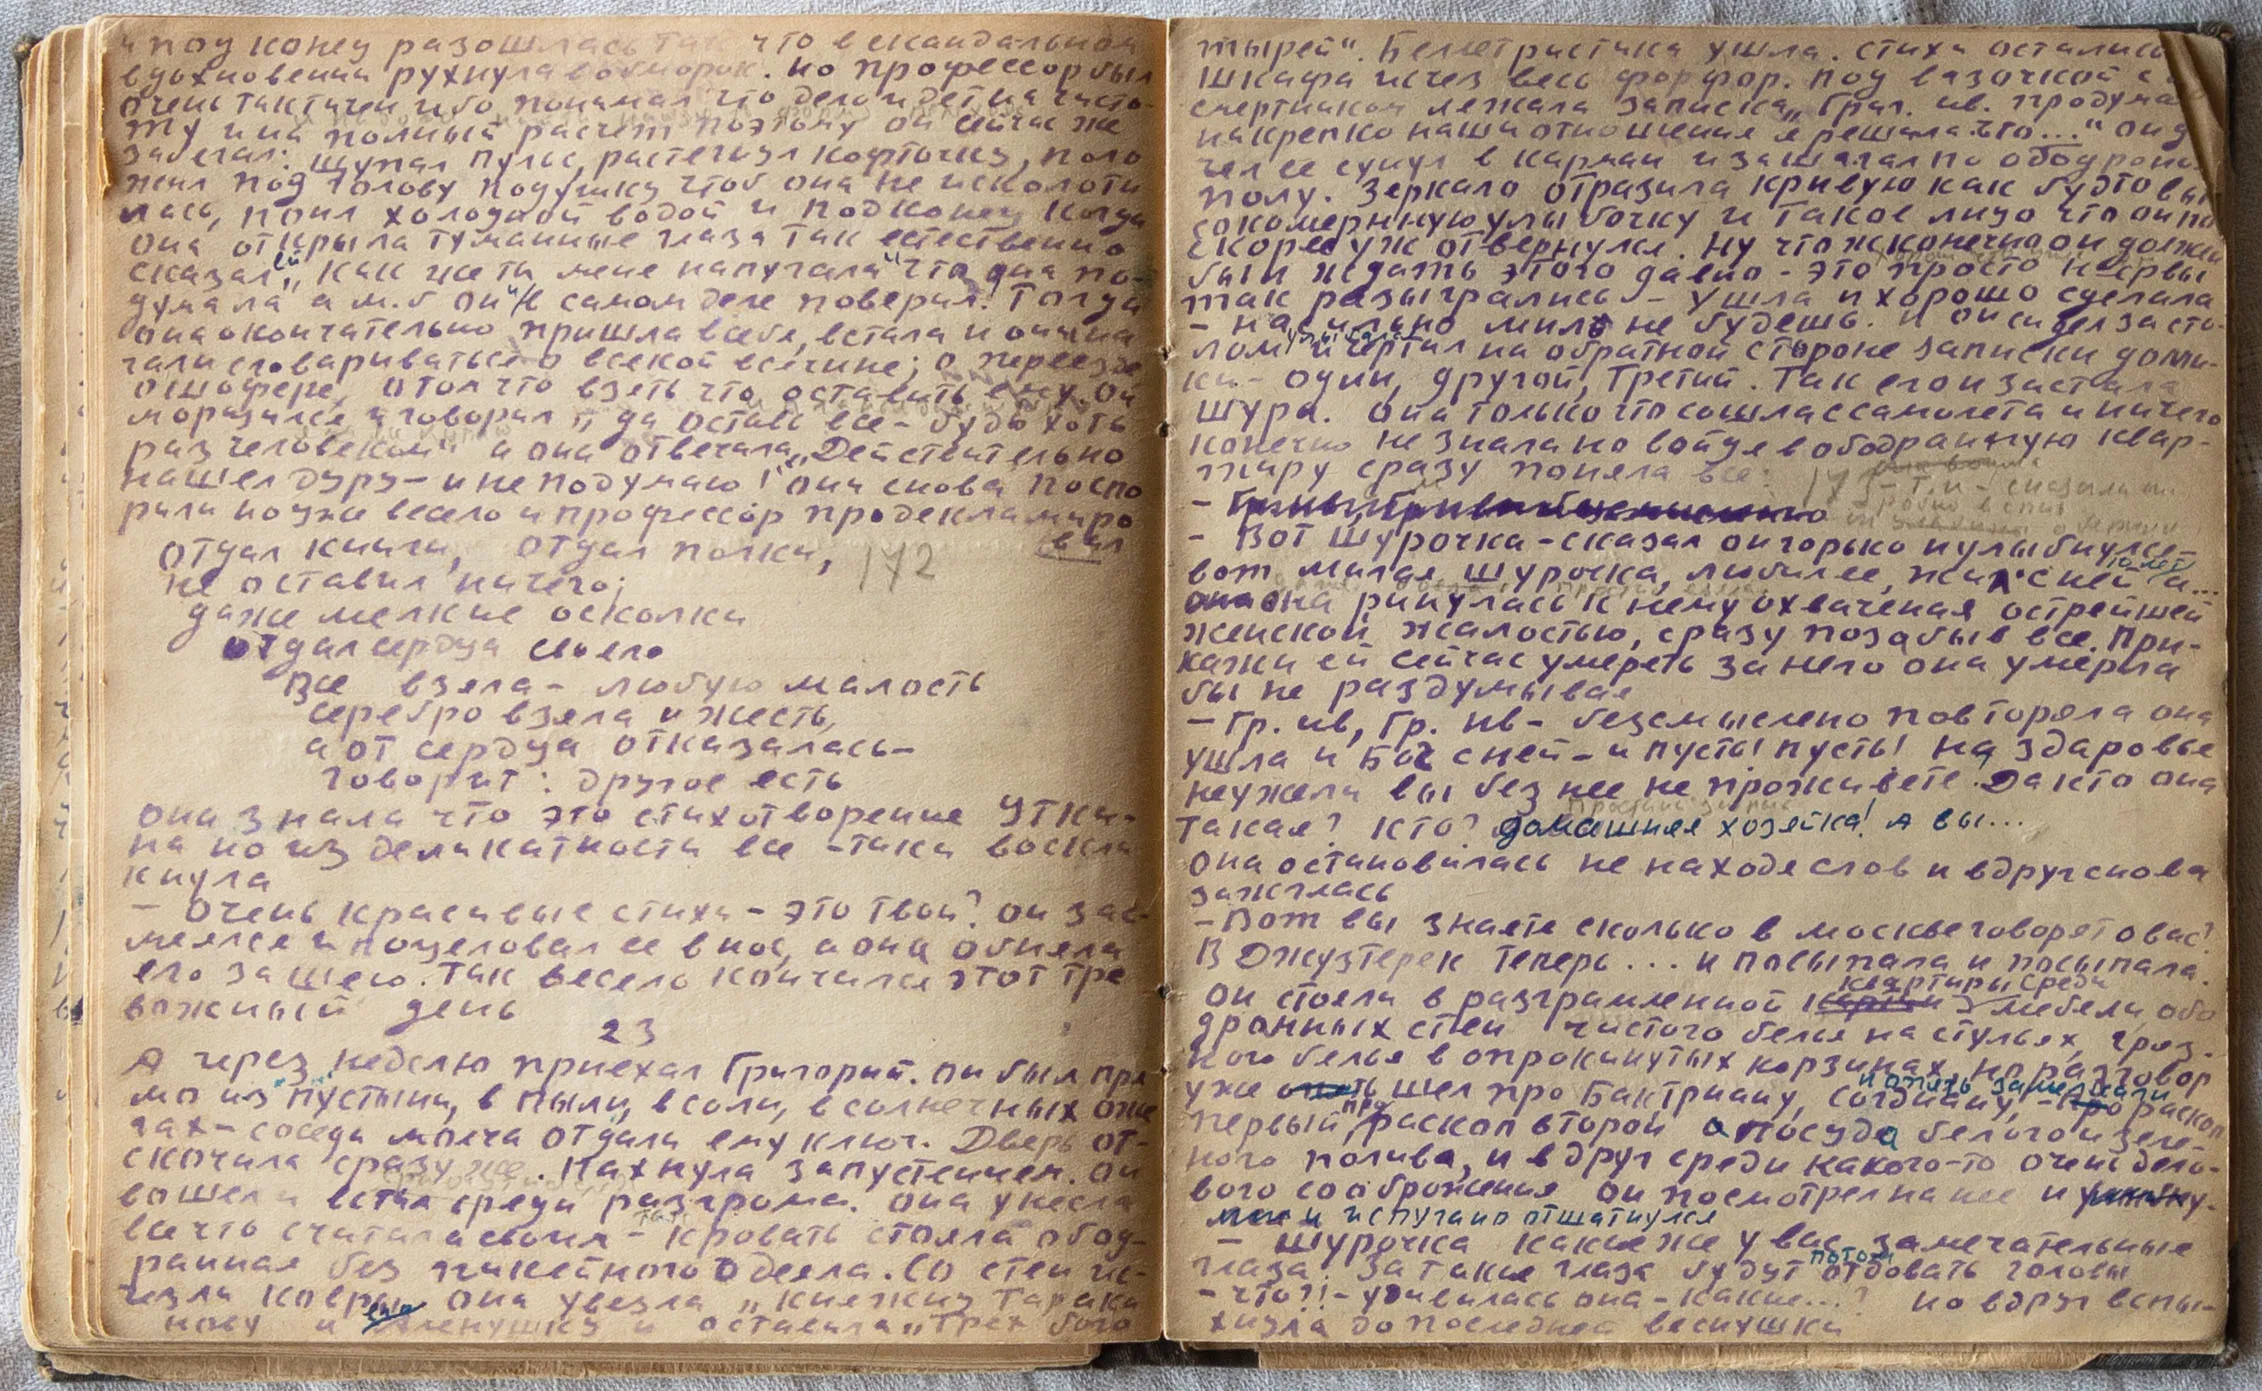 и под конец разошлась так что в скандальном
вдохновении рухнула в обморок. но профессор был
очень тактичен ибо понимал что дело идет на чисто-
ту и на полный расчет поэтому он сейчас же
забегал: щупал пульс, растегнул кофточку, поло
жил под голову подушку чтоб она не исколоти
лась, поил холодной водой и подконец когда
она открыла туманные глаза так естественно
сказал ей „как же ты мене напугала" что она по-
думала а м.б он и в самом деле поверил! Тогда
она окончательно пришла в себе, встала и они на
чали сговариваться о всекой всечине; о переезде
о шофере, о том что взеть что оставить ему. Он
морщился и говорил „да оставь все - будь хоть
раз человеком" а она отвечала „Действительно
нашел дуру - и не подумаю!" они снова поспо
рили но уже весело и профессор продекламиро
вал
отдал книги, отдал полки, 172
не оставил ничего;
даже мелкие осколки
отдал сердца своего
Все взяла - любую малость
серебро взяла и жесть,
а от сердца отказалась -
говорит: другое есть
она знала что это стихотворение Утки-
на но из деликатности все-таки воскли
кнула
- очень красивые стихи - это твои? он зас-
меялсе и поцеловал ее в нос, а она обняла
его за шею. Так весело кончилсе этот тре
вожный день
23
А через неделю приехал Григорий. он был пря
мо из пустыни, в пыли, в соли, в солнечных ожо
гах - соседи молча отдали ему ключ. Дверь от-
скочила сразу же. Пахнула запустением. он
вошел и встал среди разгрома. она унесла
все что считала своим - кровать стояла обод-
ранная без пикейного одеяла. Со стен ис-
чезли ковры она увезла „княжну Тарака
нову и Аленушку и оставила „Трех бога
тырей". Беллетристика ушла. стихи остались
шкафа исчез весь фарфор. под вазочкой с
смертником лежала записка „Григ. ив. продума
накрепко наши отношения я решила что..." он д
чел ее сунул в карман и зашагал по ободрано
полу. Зеркало отразила кривую как будто вы
сокомернную улыбочку и такое лицо что он по
скорее уж отвернулсе. Ну что ж конечно он должен
был ждать этого давно - это просто нервы
так разыгрались - ушла и хорошо сделала
- насильно милъ не будешь. и он сидел за сто-
лом улыбалсе и чертил на обратной стороне записки доми-
ки - один, другой, третий. Так его и застала
Шура. она только что сошла с самолета и ничего
конечно не знала но войдя в ободранную квар-
тиру сразу поняла все: 173
- Вот Шурочка - сказал он горько и улыбнулсе -
вот милая Шурочка, любил ее, жил с ней 10 лет и...
она ринулась к нему охваченая острейшей
женской жалостью, сразу позабыв все. При-
кажи ей сейчас умереть за него она умерла
бы не раздумывая
- Гр. ив, Гр. ив - безсмыслено повторяла она
ушла и Бог с ней - и пусть! пусть! на здаровье
неужели вы без нее не проживете. Да кто она
такая? кто? домашняя хозяйка! А вы...
она остановилась не находе слов и вдруг снова
зажглась
- Вот вы знаете сколько в москве говорят о вас?
В Джузтерек теперь... и посыпала и посыпала.
он стояли в разграмленной квартиры среди мебели, обо
дранных стен чистого белья на стульях, гряз-
ного белья в опрокинутых корзинах, но разговор
уже шел про Бактриану, согдиану, и опять замелькали - раскоп
первый, про раскоп второй о посуда белого и зеле-
ного полива, и вдруг среди какого-то очень дело-
вого соображения он посмотрел на нее и
и испугано отшатнулся
- Шурочка какие же у вас замечательные
глаза! За такие глаза будут потом отдовать головы
- что?!- удивилась она - какие...? но вдруг вспы-
хнула до последней веснушки